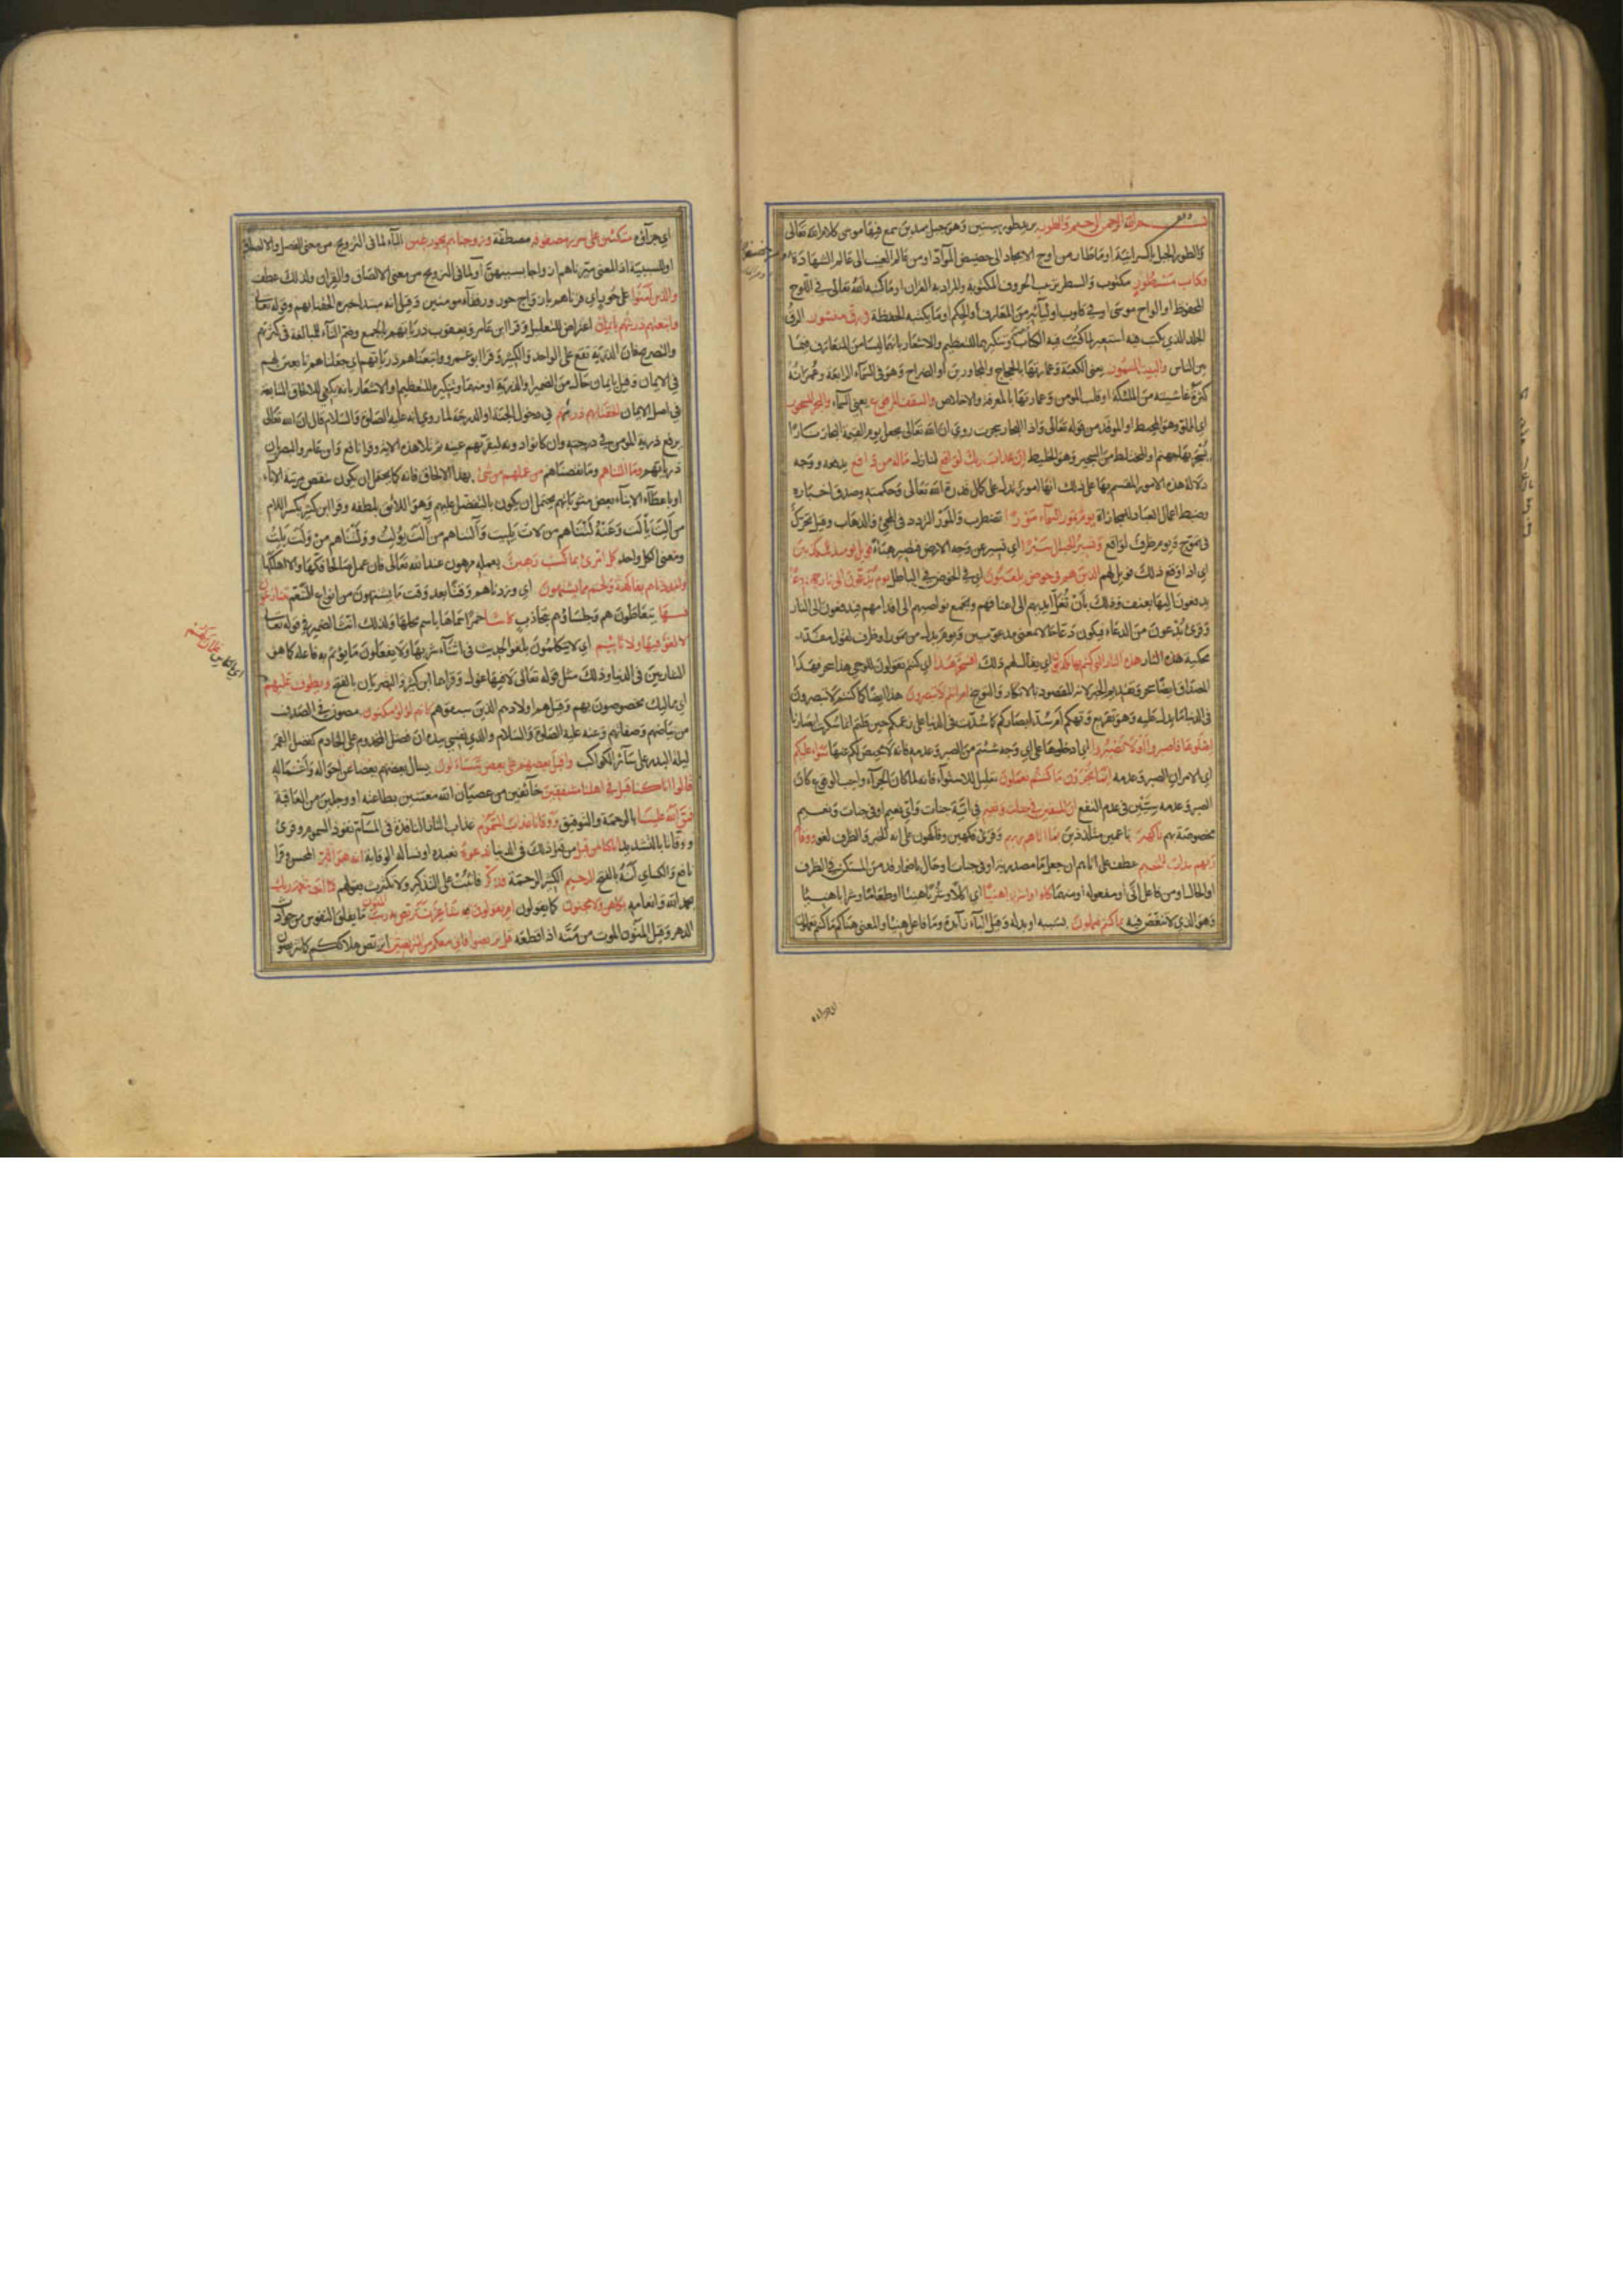 بسم الله الرحمن الرحيم والطور يريد طور سينين وهو جبل بمدين سمع فيها موسى كلام الله تعالى
والطور الجبل بالسريانية او ما طار من اوج الايجاد الى حضيض المواد او من عالم الغيب الى عالم الشهادة
وكتاب مسطور مكتوب والسطر ترتيب الحروف المكتوبة والمراد به القران او ما كتبه الله تعالى في اللوح
المحفوظ او الواح موسى او في قلوب اوليائه من المعارف والحكم او ما يكتبه الحفظة في رق منشور الرق
الجلد الذي يكتب فيه استعير لما كتب فيه الكتاب وتنكيرهما للتعظيم والاشعار بانهما ليسا من المتعارف فيما
بين الناس والبيت المعمور يعني الكعبة وعمارتها بالحجاج والمجاورين او الضراح وهو في السماء الرابعة وعمرانه
كثرة غاشيته من الملئكة او قلب المومن وعمارتها بالمعرفة والاخلاص والسقف المرفوع يعني السماء والبحر المسجور
اي المملو وهو المحيط او الموقد من قوله تعالى واذا البحار سجرت روي ان الله تعالى يجعل يوم القيمة البحار نارا
تسجر بها جهنم او المختلط من السجير وهو الخليط ان عذاب ربك لواقع لنازل ماله من دافع يدفعه ووجه
دلالة هذه الامور المقسم بها على ذلك انها امور تدل على كمال قدرة الله تعالى وحكمته وصدق اخباره
وضبط اعمال العباد للمجازاة يوم تمور السماء مورا تضطرب والمور التردد في المجئ والذهاب وقيل تحرك
في تموج ويوم ظرف لواقع وتسير الجبال سيرا اي تسير عن وجه الارض فتصير هباء فويل يومئذ للمكذبين
اي اذا وقع ذلك فويل لهم الذين هم في خوض يلعبون اي في الخوض في الباطل يوم يدعون الى نار جهنم دعا
يدفعون اليها بعنف وذلك بان تغل ايديهم الى اعناقهم ويجمع نواصيهم الى اقدامهم فيدفعون الى النار
وقرئ يدعون من الدعاء فيكون دعا حالا بمعنى مدعوعين ويوم بدل من تمور او ظرف لقول مقدر
محكية هذه النار هذه النار التي كنتم بها تكذبون اي يقال لهم ذلك افسحر هذا اي كنتم تقولون للوحي هذا سحر فهذا
المصداق ايضا سحر وتقديم الخبر لانه المقصود بالانكار والتوبيخ ام انتم لا تبصرون هذا ايضا كما كنتم لا تبصرون
في الدنيا ما يدل عليه وهو تقريع وتهكم ام سدت ابصاركم كما سدت في الدنيا على زعمكم حين قلتم انما سكرت ابصارنا
اصلوها فاصبروا او لا تصبروا اي ادخلوها على اي وجه شئتم من الصبر وعدمه فانه لا محيص لكم عنها سواء عليكم
اي الامران الصبر وعدمه انما تجزون ما كنتم تعملون تعليل للاستواء فانه لما كان الجزاء واجب الوقوع كان
الصبر وعدمه سيين في عدم النفع ان المتقين في جنات ونعيم في اية جنات واي نعيم او في جنات ونعيم
مخصوصة بهم فاكهين ناعمين متلذذين بما اتاهم ربهم وقرئ فكهين وفاكهون على انه الخبر والظرف لغو ووقاهم
ربهم عذاب الجحيم عطف على اتاهم ان جعل ما مصدرية او في جنات او حال باضمار قد من المستكن في الظرف
او الحال او من فاعل اتى او مفعوله او منهما كلوا واشربوا هنيئا اي اكلا وشربا هنيئا او طعاما وشرابا هنيئا
وهو الذي لا تنغص فيه بما كنتم تعملون بسببه او بدله وقيل الباء زائدة وما فاعل هنيئا والمعنى هناكم ما كنتم تعملون
اي جزاؤه
اي جزاؤه متكئين على سرر مصفوفة مصطفة وزوجناهم بحور عين الباء لما في التزويج من معنى الوصل والالصاق
او للسببية اذ المعنى صيرناهم ازواجا بسببهن او لما في التزويج من معنى الالصاق والقران ولذلك عطف
والذين آمنوا على حور اي قرناهم بازواج حور ورفقاء مومنين وقيل انه مبتدا خبره الحقنا بهم وقوله تعالى
واتبعتهم ذريتهم بايمان اعتراض للتعليل وقرا ابن عامر ويعقوب ذرياتهم بالجمع وضم التاء للمبالغة في كثرتهم
والتصريح فان الذرية تقع على الواحد والكثير وقرا ابو عمرو واتبعناهم ذرياتهم اي جعلناهم تابعين لهم
في الايمان وقيل بايمان حال من الضمير او الذرية او منهما وتنكيره للتعظيم والاشعار بانه يكفي للالحاق المتابعة
في اصل الايمان الحقنا بهم ذريتهم في دخول الجنة او الدرجة لما روي انه عليه الصلوة والسلام قال ان الله تعالى
يرفع ذرية المومن في درجته وان كانوا دونه لتقر بهم عينه ثم تلا هذه الاية وقرا نافع وابن عامر والبصريان
ذرياتهم وما التناهم وما نقصناهم من عملهم من شئ بهذا الالحاق فانه كما يحتمل ان يكون بنقص مرتبة الاباء
او باعطاء الابناء بعض مثوباتهم يحتمل ان يكون بالتفضل عليهم وهو اللائق بلطفه وقرا ابن كثير بكسر اللام
من الت يالت وعنه لتناهم من لات يليت وآلتناهم من آلت يؤلت وولتناهم من ولت يلت
ومعنى الكل واحد كل امرئ بما كسب رهين بعمله مرهون عند الله تعالى فان عمل صالحا فكها والا اهلكها
وامددناهم بفاكهة ولحم مما يشتهون اي وزدناهم وقتا بعد وقت ما يشتهون من انواع التنعم يتنازعون
فيها يتعاطون هم وجلساؤهم بتجاذب كاسا خمرا سماها باسم محلها ولذلك انث الضمير في قوله تعالى
لا لغو فيها ولا تاثيم اي لا يتكلمون بلغو الحديث في اثناء شربها ولا يفعلون ما يؤثم به فاعله كما هو
للشاربين في الدنيا وذلك مثل قوله تعالى لا فيها غول وقراهما ابن كثير والبصريان بالفتح ويطوف عليهم
غلمان لهم
اي بالكاس
اي مماليك مخصوصون بهم وقيل هم اولادهم الذين سبقوهم كانهم لؤلؤ مكنون مصون في الصدف
من بياضهم وصفائهم وعنه عليه الصلوة والسلام والذي نفسي بيده ان فضل المخدوم على الخادم كفضل القمر
ليلة البدر على سائر الكواكب واقبل بعضهم على بعض يتساءلون يسال بعضهم بعضا عن احواله واعماله
قالوا انا كنا قبل في اهلنا مشفقين خائفين من عصيان الله معتنين بطاعته او وجلين من العاقبة
فمن الله علينا بالرحمة والتوفيق ووقانا عذاب السموم عذاب النار النافذة في المسام نفوذ السموم وقرئ
ووقانا بالتشديد انا كنا من قبل من قبل ذلك في الدنيا ندعوه نعبده او نساله الوقاية انه هو البر المحسن وقرا
نافع والكسائي انه بالفتح الرحيم الكثير الرحمة فذكر فاثبت على التذكير ولا تكترث بقولهم فما انت بنعمة ربك
بحمد الله وانعامه بكاهن ولا مجنون كما يقولون ام يقولون شاعر نتربص به ريب المنون ما يقلق النفوس من حوادث
الدهر وقيل المنون الموت من منه اذا قطعه قل تربصوا فاني معكم من المتربصين اتربص هلاككم كما تتربصون